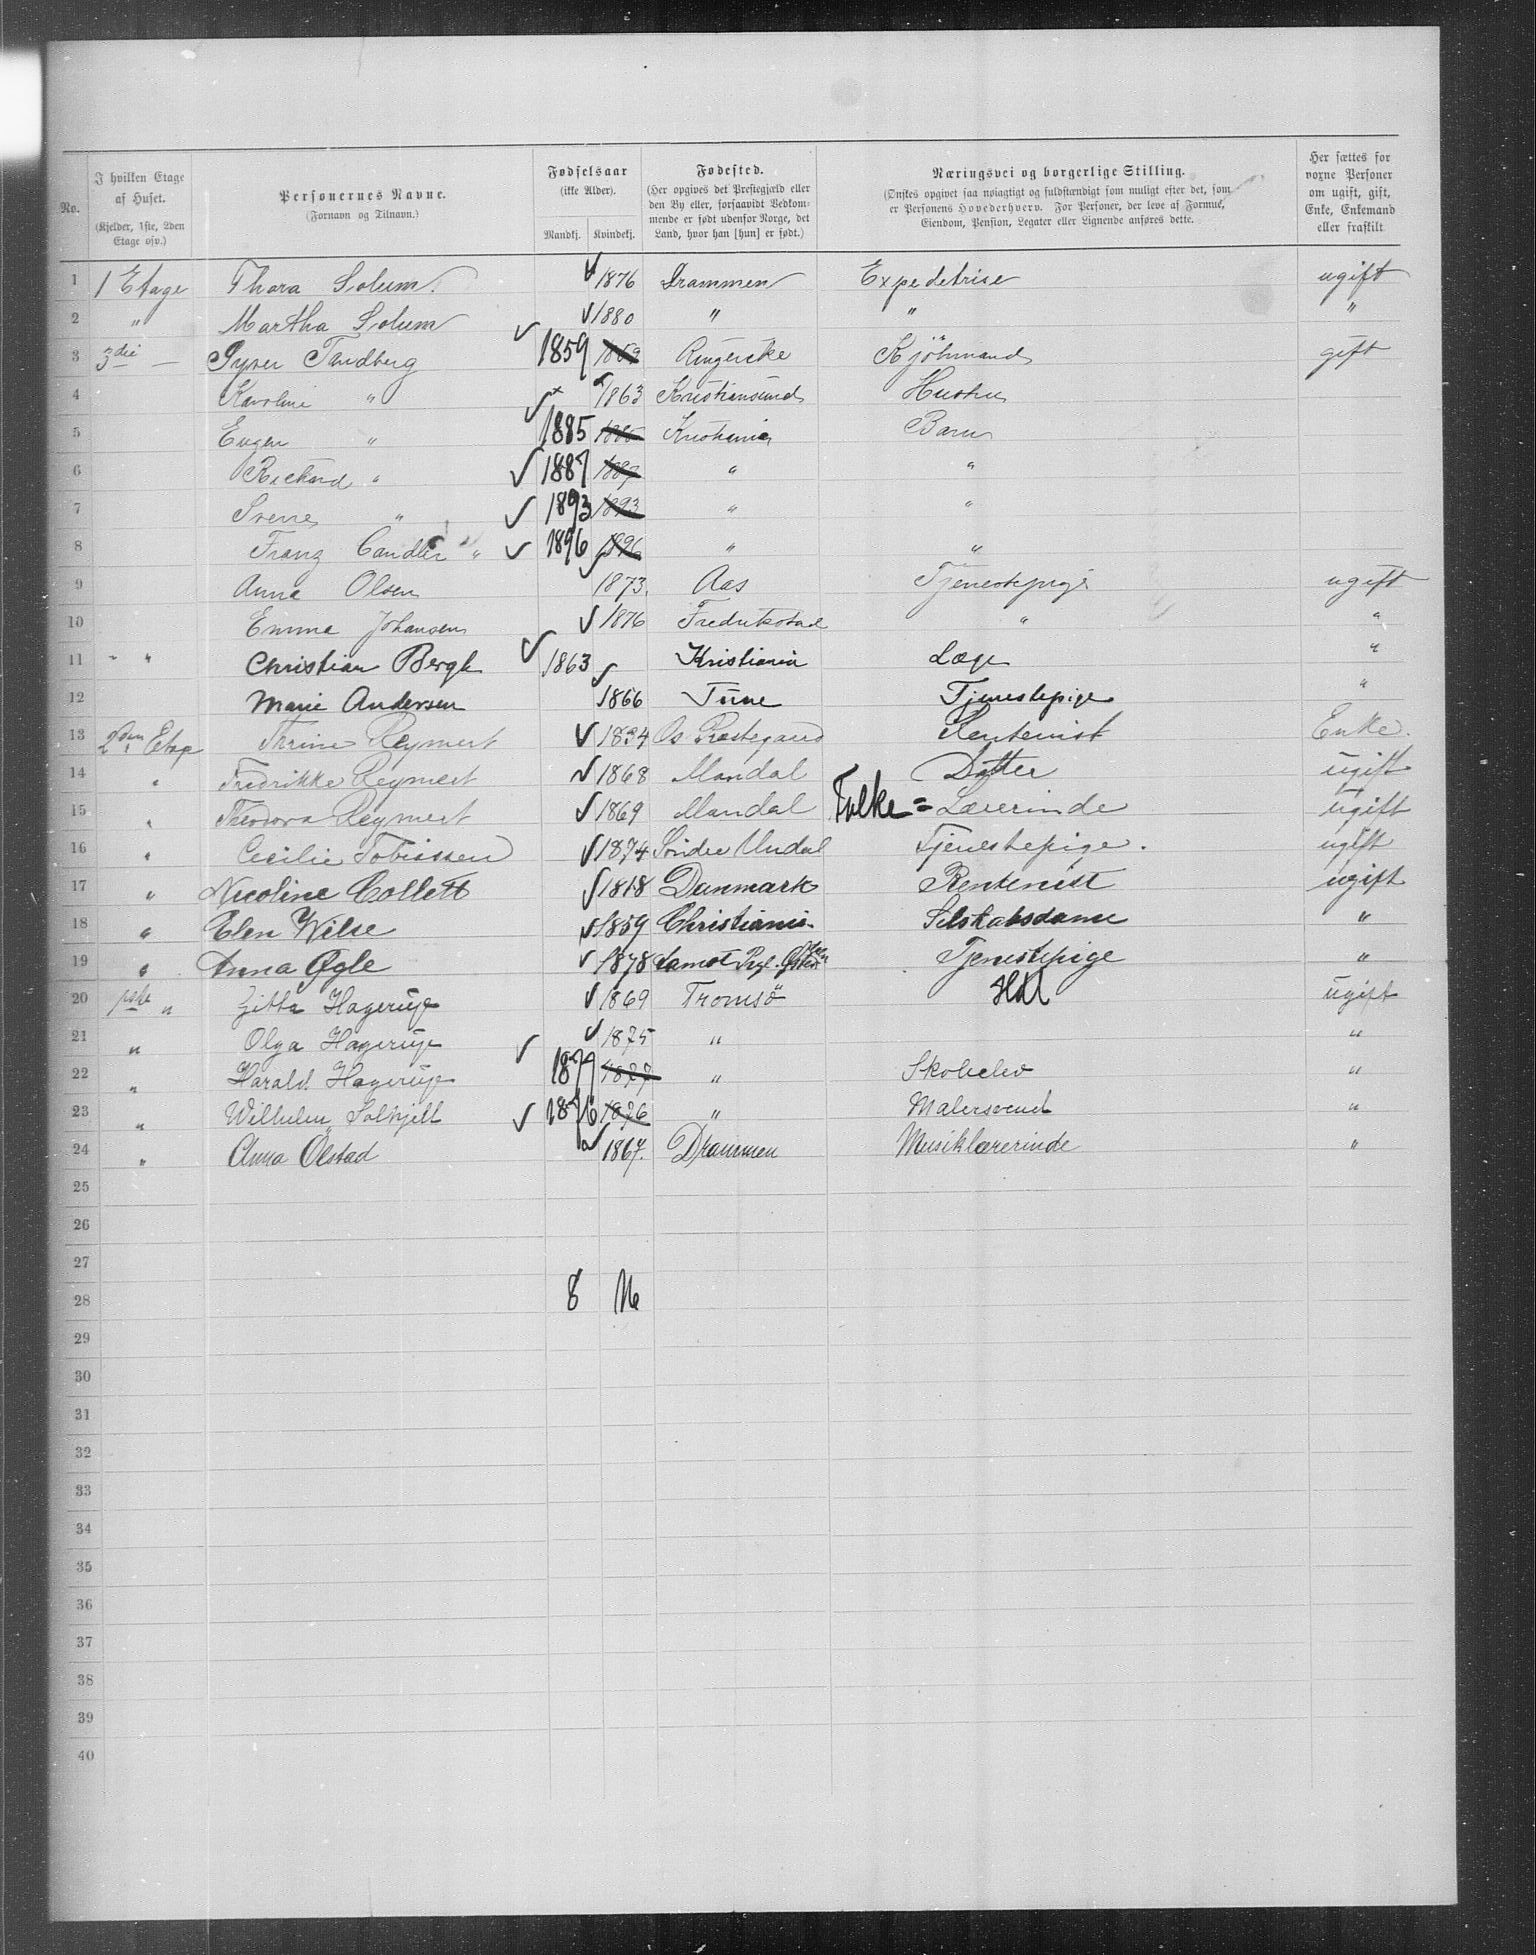 No. | I hvilken Etage af Huset. (Kjelder, 1ste, 2den Etage osv.) | Personernes Navne. (Fornavn og Tilnavn.) | Fødselsaar (ikke Alder). Mandkj. Kvindekj. | Fødested. (Her opgives det Præstegjæld eller den By eller, forsaavidt Vedkommende er født udenfor Norge, det Land, hvor han [hun] er født.) | Næringsvei og borgerlige Stilling. (Ønskes opgivet saa nøiagtigt og fuldstændigt som muligt efter det, som er Personens Hovederhverv. For Personer, der leve af Formue, Eiendom, Pension, Legater eller Lignende anføres dette. | Her sættes for voxne Personer om ugift, gift, Enke, Enkemand eller fraskilt
1 1 Etage Thora Solum. 1876 Drammen Expedetrise ugift
2 " Martha Solum 1880 " " "
3 3die — Syver Tandberg 1859 1859 Ringerike Kjöbmand gift
4 Karoline " 1863 Kristiansund Hustru
5 Eugen " 1885 1885 Kristiania Barn
6 Richard " 1887 1887 " "
7 Sverre " 1893 1893 " "
8 Franz " 1896 1896 " "
9 Anna Olsen 1873. Aas Tjenestepige ugift
10 Emma Johansen 1876 Fredrikstad " "
11 " " Christian Bergh 1863 Kristiania Læge "
12 Marie Andersen 1866 Tune Tjenestepige "
13 2den Etage Thrine Reymert 1834 Os Præstegaard Rentenist Enke.
14 " Fredrikke Reymert 1868 Mandal Datter ugift
15 " Theodora Reymert 1869 Mandal Folke= Lærerinde ugift
16 " Cecilie Tobiassen 1874 Söndre Undal Tjenestepige. ugift
17 " Nicoline Collett 1818 Danmark Rentenist ugift
18 " Elen Wilse 1859 Christiania. Selskabsdame "
19 " Anna Øgle 1878 Tjenestepige "
20 1ste " Zitta Hagerup 1869 Tromsö ugift
21 " Olga Hagerup 1875 " "
22 " Harald Hagerup 1877 1877 " Skoelev "
23 " Wilhelm 1876 1876 " Malersvend "
24 " Anna Olstad 1867. Drammen Musiklærerinde "
25
26
27
28 8 16
29
30
31
32
33
34
35
36
37
38
39
40